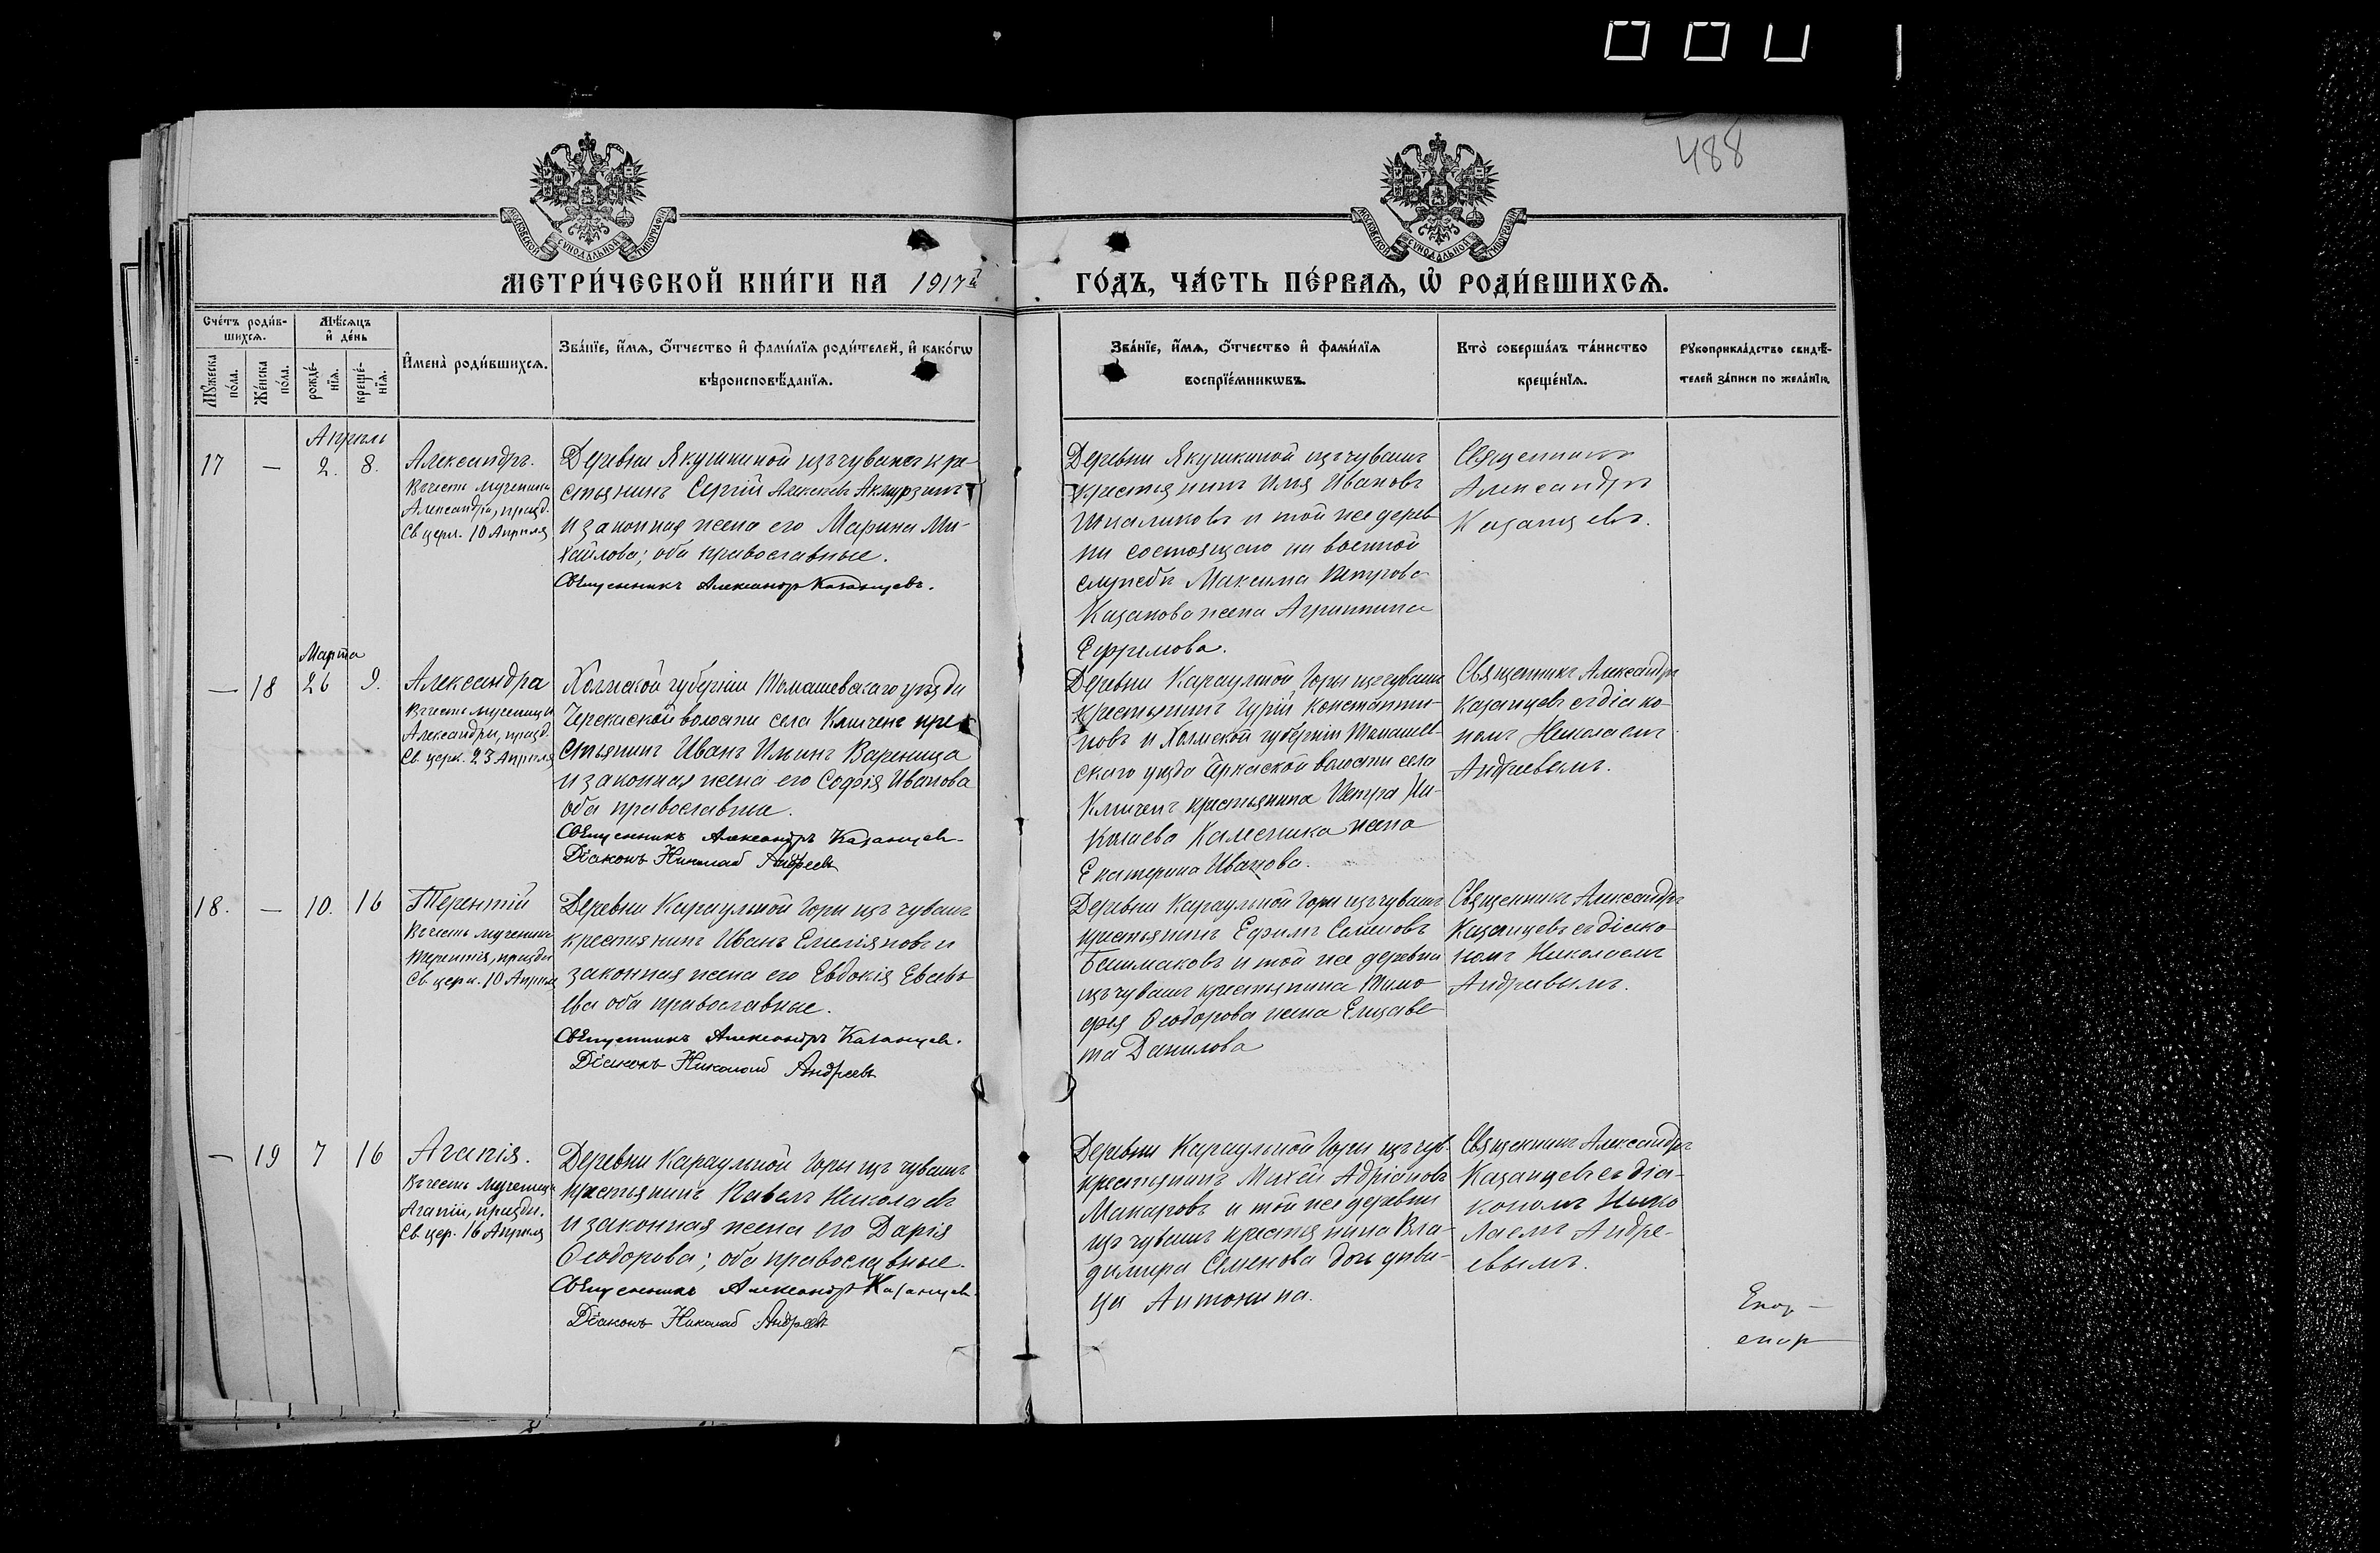 488
МОСКОВСКОЙ СѴНОДАЛЬНОЙ ТИПОГРАФІИ
МОСКОВСКОЙ СѴНОДАЛЬНОЙ ТИПОГРАФІИ
МЕТРИ́ЧЕСКОЙ КНИ́ГИ НА 1917й
ГО́ДЪ, ЧА́СТЬ ПЕ́РВАѦ, Ѡ҆ РОДИ́ВШИХСѦ.
Сче́тъ роди́в-
шихсѧ.
Мѣ́сѧцъ
и҆ де́нь
Мꙋ́жеска
по́ла.
Же́нска
по́ла.
рожде́-
нїѧ.
креще́-
нїѧ.
И҆мена̀ роди́вшихсѧ.
Зва́нїе, и҆́мѧ, ѻ҆́тчество и҆ фами́лїѧ роди́телей, и҆ како́гѡ
вѣроисповѣ́данїѧ.
Зва́нїе, и҆́мѧ, ѻ҆́тчество и҆ фами́лїѧ
воспрїе́мникѡвъ.
Кто̀ соверша́лъ та́инство
креще́нїѧ.
Рꙋкоприкла́дство свидѣ́-
телей за́писи по жела́нїю.
Апрѣль
17 — 2. 8.
Александръ.
Въ честь мученика
Александра, празд.
Св. церк. 10 Апрѣля
Деревни Якушкиной изъ чувашъ кре-
стьянинъ Сергій Алексѣевъ Акмурзинъ
и законная жена его Марина Ми-
хайлова; оба православные.
Священникъ Александръ Казанцевъ.
Деревни Якушкиной изъ чувашъ
крестьянинъ Илья Ивановъ
Шкаликовъ и той же дерев
ни состоящаго на военной
службѣ Максима Петрова
Казакова жена Агриппина
Ефремова.
Священникъ
Александръ
Казанцевъ.
Марта
— 18 26 9.
Александра
Въ честь мученицы
Александры, празд.
Св. церк. 23 Апрѣля
Холмской губерніи Томашевскаго уѣзда
Черкаской волости села Кличенъ кре-
стьянинъ Иванъ Ильинъ Вареница
и законная жена его Софія Иванова
оба православные.
Священникъ Александръ Казанцевъ.
Діаконъ Николай Андреевъ
Деревни Караульной Горы изъ чувашъ
крестьянинъ Гурій Константи-
новъ и Холмской губерніи Томашев-
скаго уѣзда Черкаской волости села
Кличенъ крестьянина Петра Ни-
колаева Каменика жена
Екатерина Иванова.
Священникъ Александръ
Казанцевъ съ діако-
номъ Николаемъ
Андреевымъ.
18. — 10. 16
Терентій
Въ честь мученика
Терентія, праздн
Св. церк. 10 Апрѣля
Деревни Караульной Горы изъ чувашъ
крестьянинъ Иванъ Емеліяновъ и
законная жена его Евдокія Евсѣ-
ева оба православные.
Священникъ Александръ Казанцевъ.
Діаконъ Николай Андреевъ
Деревни Караульной Горы изъ чувашъ
крестьянинъ Ефимъ Семеновъ
Башмаковъ и той же деревни
изъ чувашъ крестьянина Тимо
фея Ѳеодорова жена Елизаве
та Данилова
Священникъ Александръ
Казанцевъ съ діако
номъ Николаемъ
Андреевымъ.
— 19 7 16
Агапія.
Въ честь мученицы
Агапіи, праздн.
Св. цер. 16 Апрѣля
Деревни Караульной Горы изъ чувашъ
крестьянинъ Павелъ Николаевъ
и законная жена его Дарія
Ѳеодорова; оба православные.
Священникъ Александръ Казанцевъ.
Діаконъ Николай Андреевъ
Деревни Караульной Горы изъ чув.
крестьянинъ Михей Адріановъ
Макаровъ и той же деревни
изъ чувашъ крестьянина Вла-
димира Семенова дочь дѣви-
ца Антонина.
Священникъ Александръ
Казанцевъ съ діа-
кономъ Нико
лаемъ Андре-
евымъ.